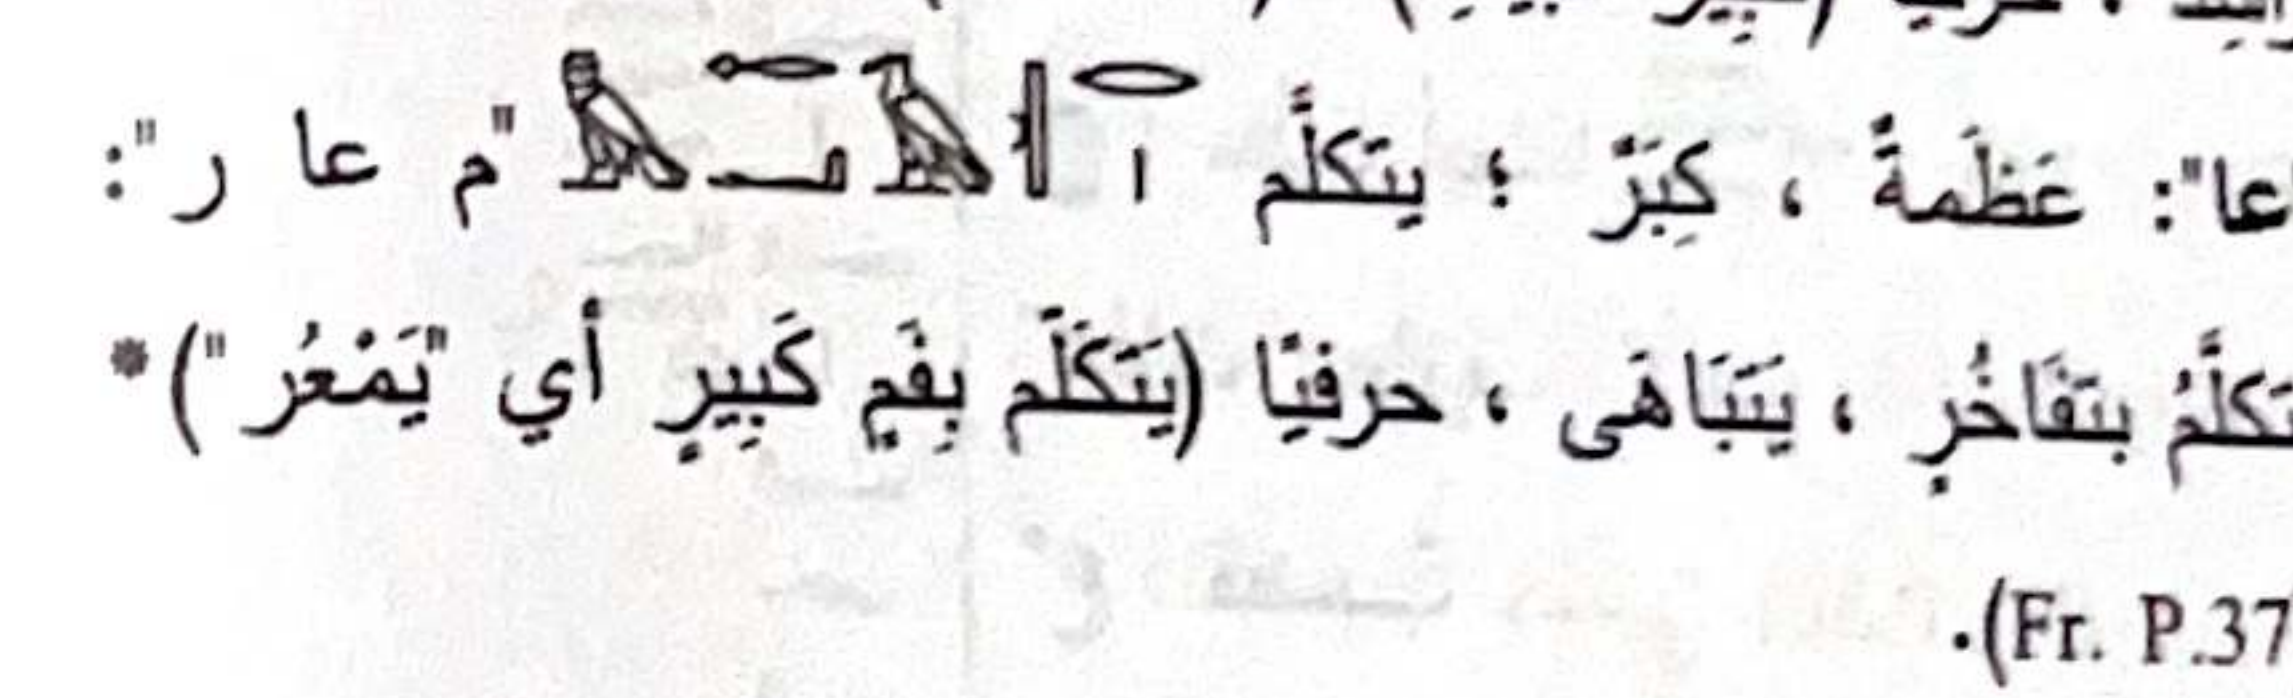 عا": عَظَمةٌ ، كِبَرٌ ؛ يتكلَّم 𓅓𓂝𓄿𓂋𓏤 "م عا ر":
بتَفَاخُرٍ ، يَتَبَاهَى ، حرفيًا (يَتَكَلَّم بِفَمٍ كَبِيرٍ أي "يَمْعُر")*
(Fr. P.37.